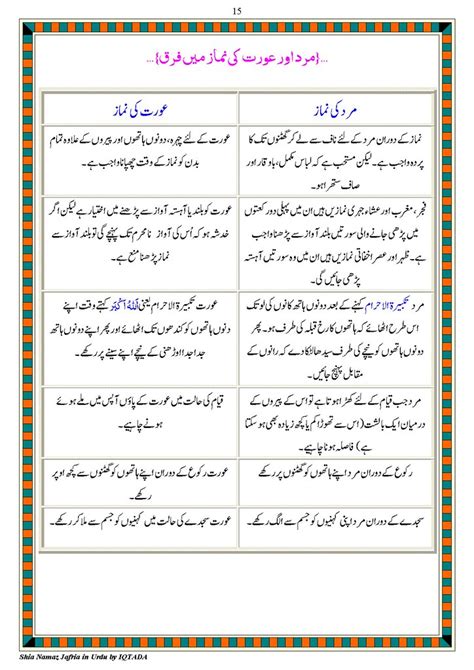 15
...{مرد اور عورت کی نماز میں فرق}...
مرد کی نماز
عورت کی نماز
نماز کے دوران مرد کے لئے ناف سے لے کر گھٹنوں تک کا
پردہ واجب ہے۔ لیکن مستحب ہے کہ لباس مکمل، باوقار اور
صاف ستھرا ہو۔
عورت کے لئے چہرہ، دونوں ہاتھوں اور پیروں کے علاوہ تمام
بدن کو نماز کے وقت چھپانا واجب ہے۔
فجر، مغرب اور عشاء جہری نمازیں ہیں ان میں پہلی دو رکعتوں
میں پڑھی جانے والی سورتیں بلند آواز سے پڑھنا واجب
ہے۔ ظہر اور عصر اخفاتی نمازیں ہیں ان میں سورتیں آہستہ
پڑھی جائیں گی۔
عورت کو بلند یا آہستہ آواز سے پڑھنے میں اختیار ہے لیکن اگر
خدشہ ہو کہ اُس کی آواز نامحرم تک پہنچے گی تو بلند آواز سے
نماز پڑھنا منع ہے۔
مرد تکبیرۃ الاحرام کہنے کے بعد دونوں ہاتھ کانوں کی لو تک
اس طرح اٹھائے کہ ہاتھوں کا رخ قبلہ کی طرف ہو۔ پھر
دونوں ہاتھوں کو نیچے کی طرف سیدھا لٹکا دے کہ رانوں کے
مقابل پہنچ جائیں۔
عورت تکبیرۃ الاحرام یعنی اَللّٰهُ اَكْبَرُ کہتے وقت اپنے
دونوں ہاتھوں کو کندھوں تک اٹھائے اور پھر اپنے ہاتھوں کو
جدا جدا اوڑھنی کے نیچے اپنے سینے پر رکھے۔
مرد جب قیام کے لئے کھڑا ہوتا ہے تو اس کے پیروں کے
درمیان ایک بالشت (اس سے تھوڑا کم یا کچھ زیادہ بھی ہو سکتا
ہے) فاصلہ ہونا چاہیے۔
قیام کی حالت میں عورت کے پاؤں آپس میں ملے ہوئے
ہونے چاہیے۔
رکوع کے دوران مرد اپنے ہاتھوں کو گھٹنوں پر رکھے۔
عورت رکوع کے دوران اپنے ہاتھوں کو گھٹنوں سے کچھ اوپر
رکھے۔
سجدے کے دوران مرد اپنی کہنیوں کو جسم سے الگ رکھے۔
عورت سجدے کی حالت میں کہنیوں کو جسم سے ملا کر رکھے۔
Shia Namaz Jafria in Urdu by IQTADA